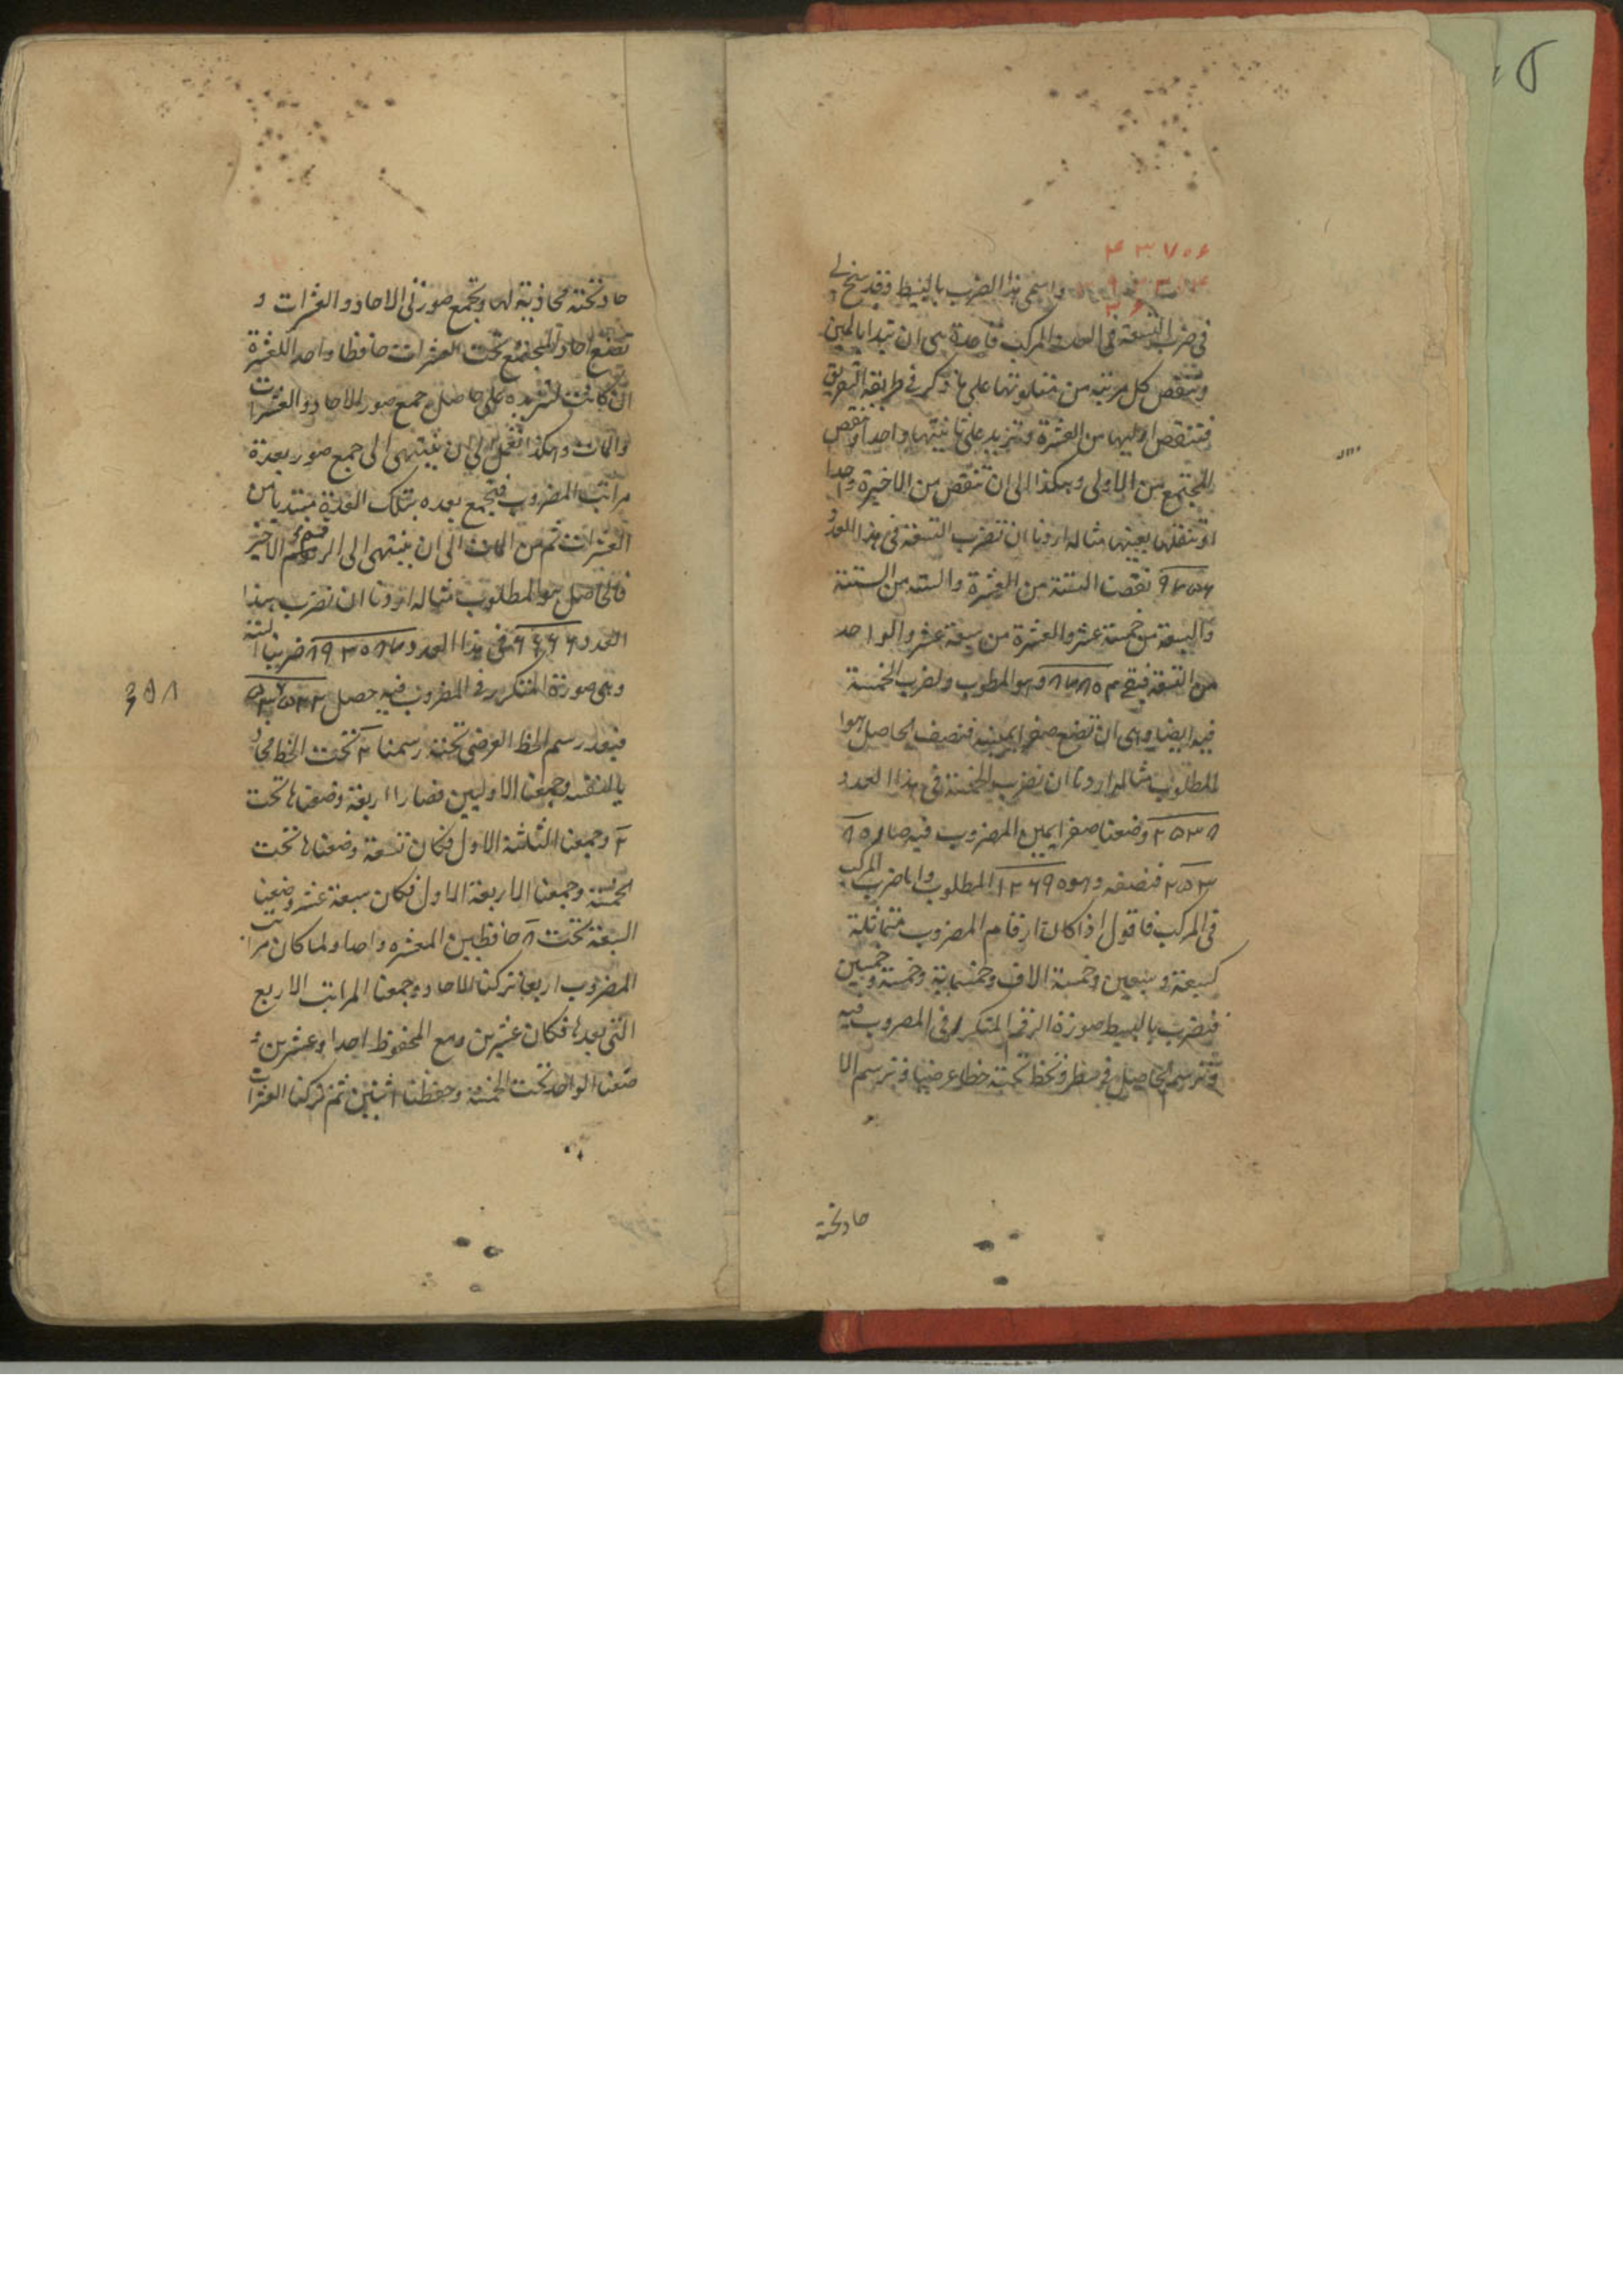 ۴۳۷۵۶
واسمی هذا الضرب بالبسیط وقد سنح لی
فی ضرب التسعة فی العدد المرکب قاعدة هی ان تبدا بالیمین
وتنقص کل مرتبة من متلوتها علی ما ذکر فی طریقة التفریق
فتنقص اولیها من العشرة وتزید علی ثانیتها واحدا وتنقص
المجتمع من الاولی وهکذا الی ان تنقص من الاخیرة واحدا
او تنقلها بعینها مثاله اردنا ان نضرب التسعة فی هذا العدد
نقصنا الستة من العشرة والستة من الستة
والسبعة من خمسة عشر والعشرة من سبعة عشر والواحد
من التسعة فبقی وهو المطلوب ولضرب الخمسة
فیه ایضا وهی ان تضع صفرا یمینه فنصف الحاصل هو
المطلوب مثاله اردنا ان نضرب الخمسة فی هذا العدد
۲۵۳۸ وضعنا صفرا یمین المضروب فیه صار
فنصفه وهو ۱۲۶۹۰ المطلوب واما ضرب المرکب
فی المرکب فاقول اذا کان ارقام المضروب متماثلة
کسبعة وسبعین وخمسة الاف وخمسمایة وخمسة وخمسین
فنضرب بالبسیط صورة الرقم المتکرر فی المضروب فیه
وترسم الحاصل فی سطر وتخط تحته خطا عرضیا وترسم الا
حاد تحته
حاد تحته محاذیة لها وتجمع صورتی الاحاد والعشرات و
تضع احاد المجتمع تحت العشرات حافظا واحدا للعشرة
ان کانت لتزیده علی حاصل جمع صور الاحاد والعشرات
والمات وهکذا تعمل الی ان ینتهی الی جمع صور بعدة
مراتب المضروب فتجمع بعده بتلک العدة مبتدیا من
العشرات ثم من المات الی ان ینتهی الی الرقم الاخیر
فالحاصل هو المطلوب مثاله اردنا ان نضرب هذا
العدد ۶۶۶۶ فی هذا العدد ضربنا الستة
وهی صورة المتکرر فی المضروب فیه حصل
فبعد رسم الخط العرضی تحته رسمنا ۲ تحت الخط محاذ
یا لنفسه وجمعنا الاولیین فصارا اربعة وضعناها تحت
۲ وجمعنا الثلثة الاول فکان تسعة وضعناها تحت
الخمسة وجمعنا الاربعة الاول فکان سبعة عشر وضعنا
السبعة تحت حافظین للعشرة واحدا ولما کان مراتب
المضروب اربعا ترکنا الاحاد وجمعنا المراتب الاربع
التی بعدها فکان عشرین ومع المحفوظ احدا وعشرین و
ضعنا الواحد تحت الخمسة وحفظنا اثنین ثم ترکنا العشرات